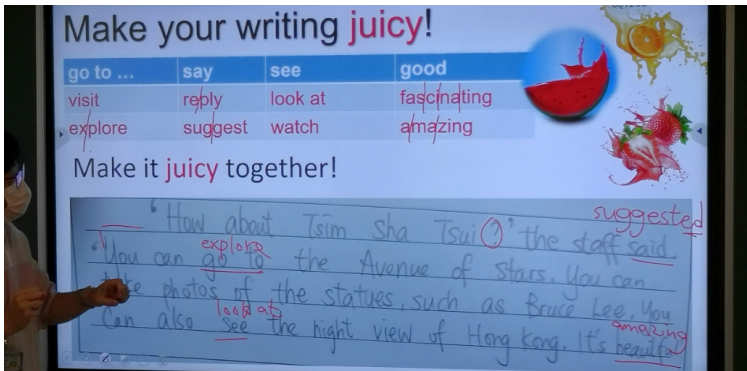 Make your writing juicy!
go to ... say see good
visit reply look at fascinating
explore suggest watch amazing
Make it juicy together!
suggested
'How about Tsim Sha Tsui?' the staff said.
explore
'You can go to the Avenue of Stars. You can
take photos of the statues, such as Bruce Lee. You
look at
amazing
Can also see the night view of Hong Kong. It's beautiful